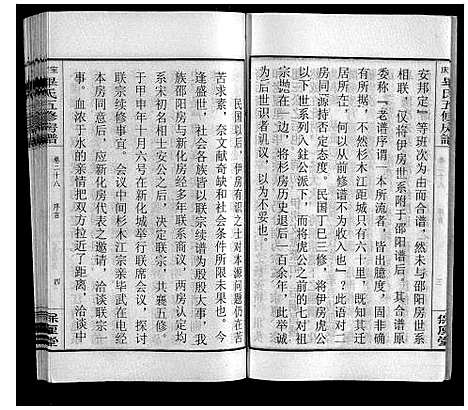 安邦定』等班次为由而合谱，然未与邵阳房世系
相联，仅将伊房世系附于邵阳谱后，其合谱原
委称『老谱序谓一本所流者，皆出臆度，固非确
有所据，不然杉木江距城只有六十里，既知其迁
居所在，何以从前修谱不为收入也』？此语对二
房同源持否定态度。民国丁巳三修，将伊房虎公
以下世系列入鈺公派下，而将虎公之前的七对祖
宗抛在一边，将杉房历史退后一百余年，此举诚
为后世识者讥议，以为不妥也。
民国以后，伊房有识之士对本源问题仍在苦
苦求索，奈文献奇缺和社会条件所限未果也。今
逢盛世，社会各族皆以联宗续谱为殷殷大事，我
族邵阳房与新化房经多年联系商议，两房认定均
系宋初名相士安公之后，决定联宗，共襄五修。
于甲申年十月六号在新化城举行联席会议，探讨
联宗续修事宜。会议中间杉木江宗亲毕武在电经
知悉后，应新化房代表之邀请，洽谈联宗一
血浓于水的亲情把双方拉近了距离。洽谈中
毕氏五修房谱
卷二十八
序言
四
保厘堂
毕氏五修房谱
三
保厘堂